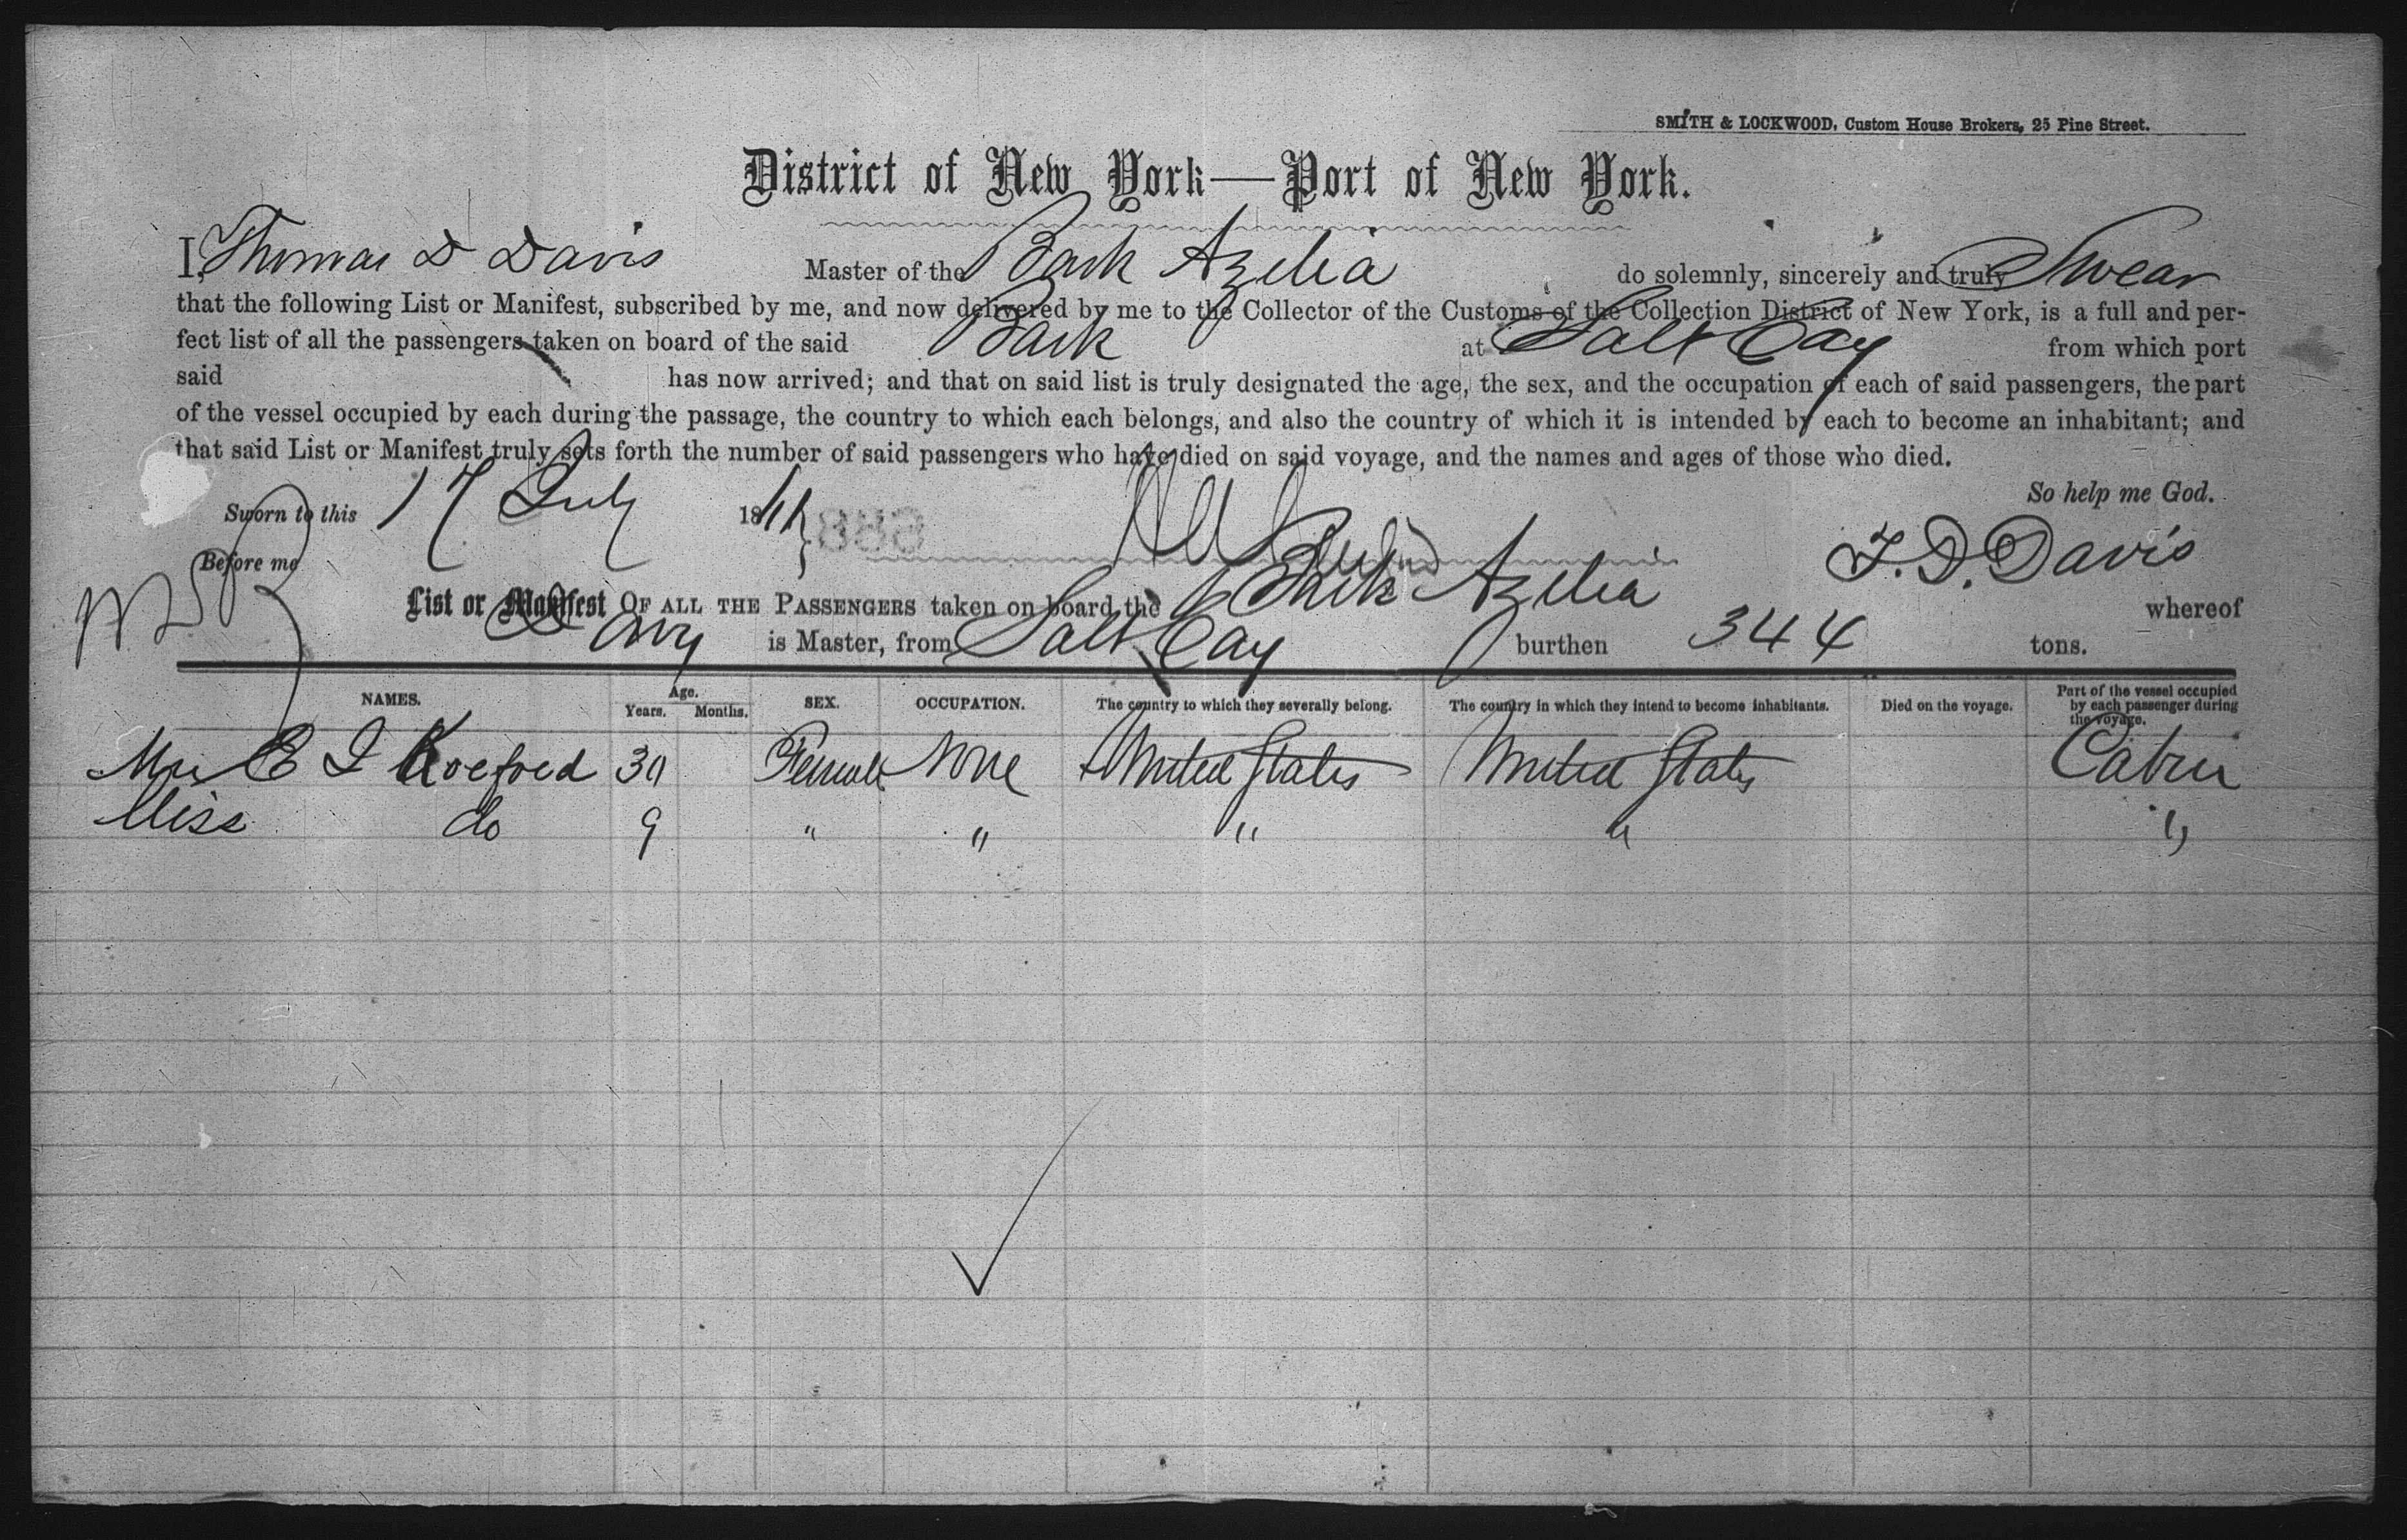 SMITH & LOCKWOOD, Custom House Brokers, 25 Pine Street.
District of New York—Port of New York.
I, Thomas D Davis Master of the Bark Azelia do solemnly, sincerely and truly Swear
that the following List or Manifest, subscribed by me, and now delivered by me to the Collector of the Customs of the Collection District of New York, is a full and per-
fect list of all the passengers taken on board of the said Bark at Salt Cay from which port
said has now arrived; and that on said list is truly designated the age, the sex, and the occupation of each of said passengers, the part
of the vessel occupied by each during the passage, the country to which each belongs, and also the country of which it is intended by each to become an inhabitant; and
that said List or Manifest truly sets forth the number of said passengers who have died on said voyage, and the names and ages of those who died.
So help me God.
Sworn to this 17 July 18
Before me T. D. Davis
List or Manifest OF ALL THE PASSENGERS taken on board the Bark Azelia whereof
Davis is Master, from Salt Cay burthen 344 tons.
NAMES. Age. Years. Months. SEX. OCCUPATION. The country to which they severally belong. The country in which they intend to become inhabitants. Died on the voyage. Part of the vessel occupied by each passenger during the voyage.
Mrs E I Koefoed 30 Female None United States United States Cabin
Miss do 9 " " " " "